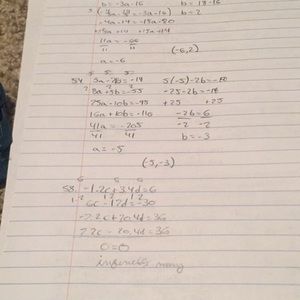 b=-3a-16 b=18-16
-4a-14=-15a-80 b=2
+15a+14 +15a+14
11a=-66
11 11 (-6,2)
a=-6
5 5 5
54. 5a-2b=-19 5(-5)-2b=-19
3a+5b=-55 -25-2b=-19
25a-10b=-95 +25 +25
16a+10b=-110 -2b=6
41a=-205 -2 -2
41 41 b=-3
a=-5
(-5,-3)
6 6 6
58. -1.2c+3.4d=6
6c-17d=-30
-7.2c+20.4d=36
7.2c-20.4d=36
0=0
infinetely many